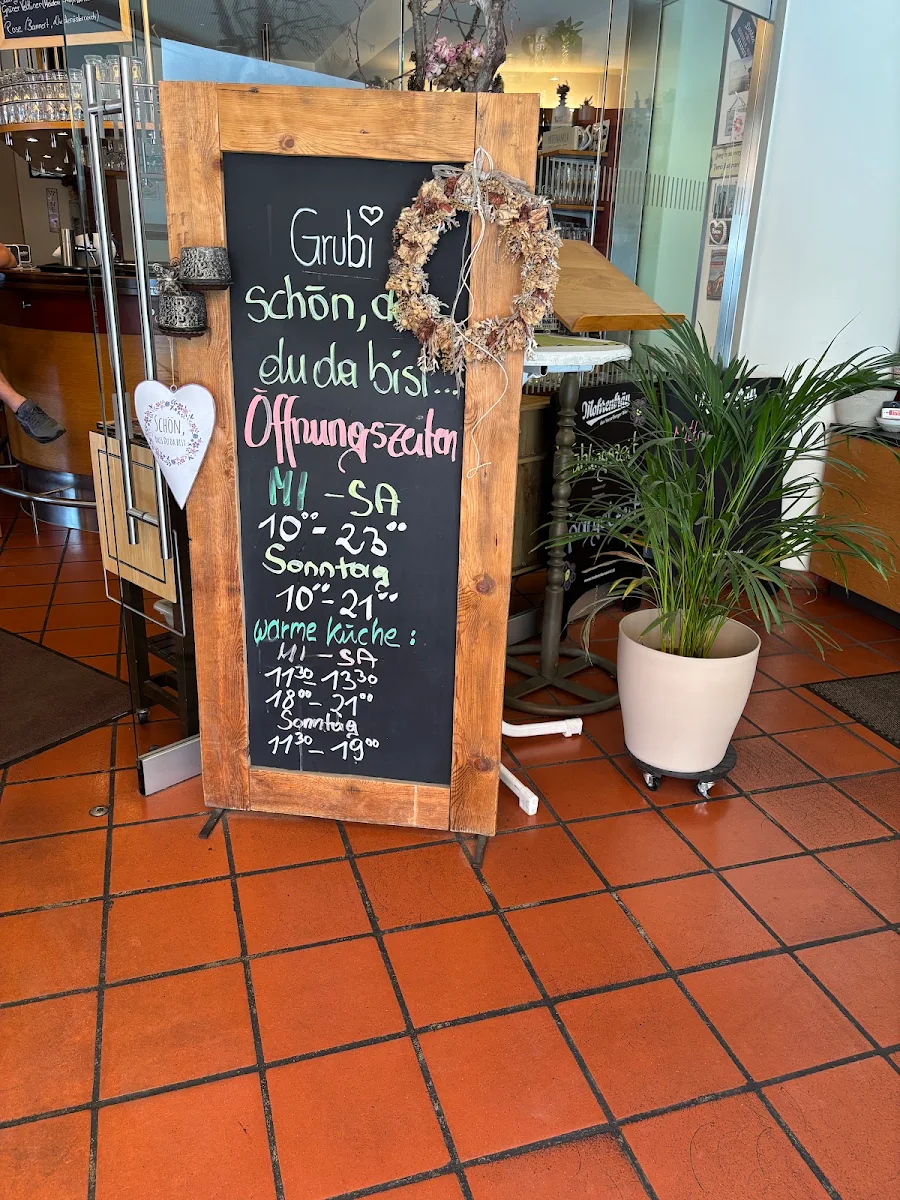 Rosé (Bannert,
Grubi
schön, d
du da bist...
Öffnungszeiten
MI - SA
10⁰⁰ - 23⁰⁰
Sonntag
10⁰⁰ - 21⁰⁰
warme Küche :
MI - SA
11³⁰ - 13³⁰
18⁰⁰ - 21⁰⁰
Sonntag
11³⁰ - 19⁰⁰
SCHÖN,
DASS DU DA BIST
Mohrenbräu